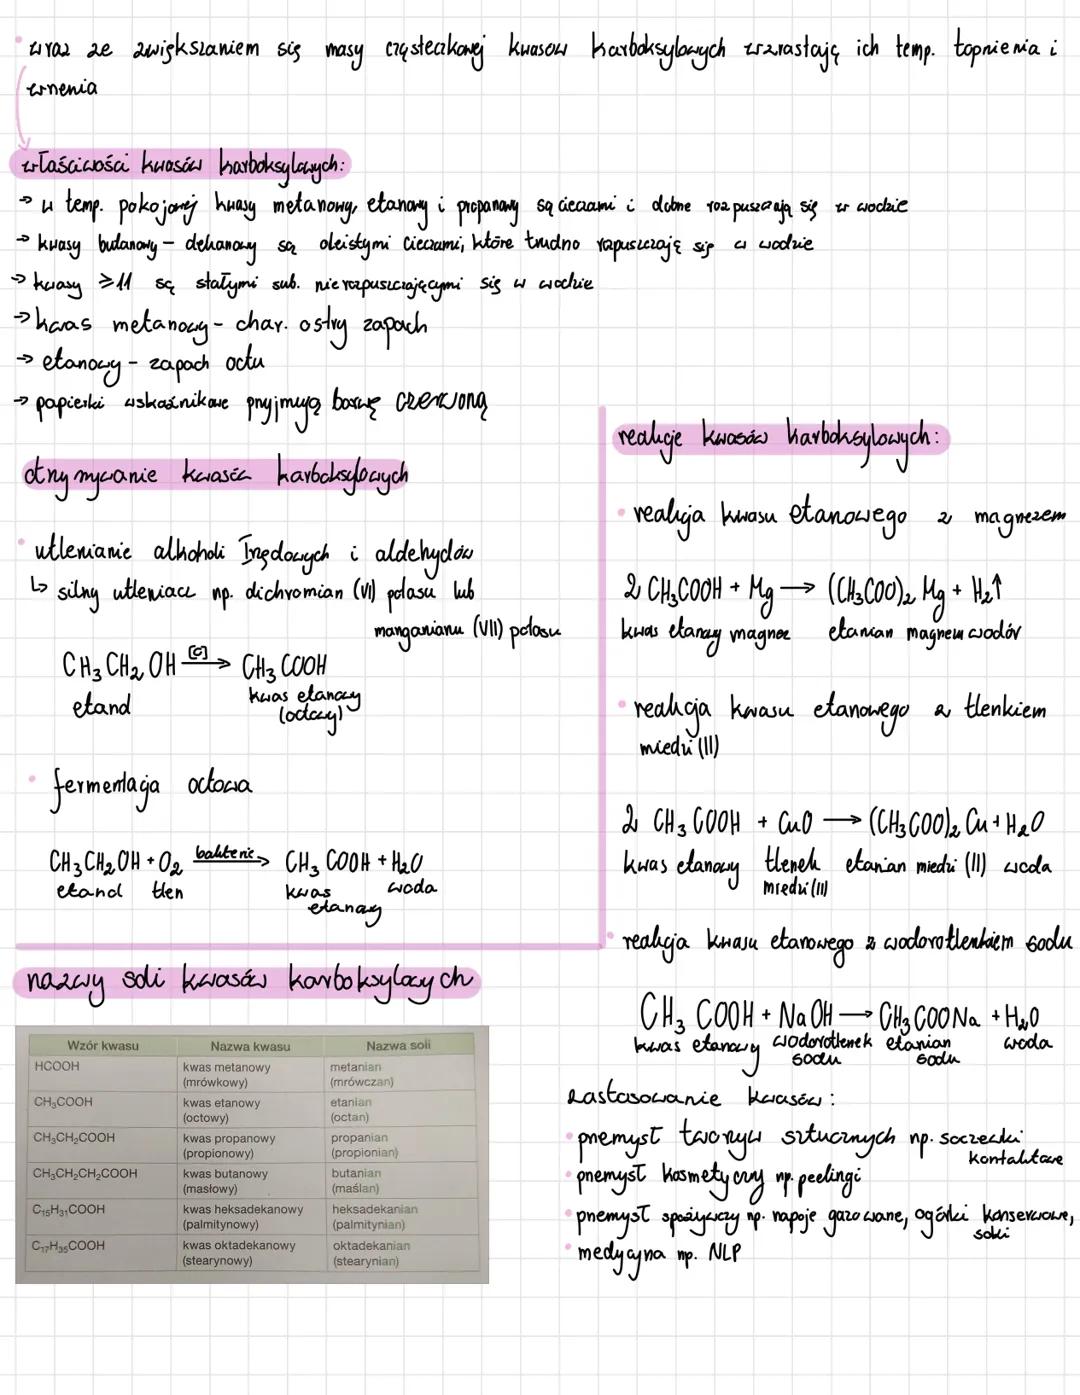 wraz ze zwiększaniem się masy cząsteczkowej kwasów karboksylowych wzrastają ich temp. topnienia i
wrzenia
właściwości kwasów karboksylowych:
→ w temp. pokojowej kwasy metanowy, etanowy i propanowy są cieczami i dobrze rozpuszczają się w wodzie
→ kwasy butanowy - dekanowy są oleistymi cieczami, które trudno rozpuszczają się w wodzie
→ kwasy ≥11 są stałymi sub. nierozpuszczającymi się w wodzie
→ kwas metanowy - char. ostry zapach
→ etanowy - zapach octu
→ papierki wskaźnikowe przyjmują barwę czerwoną
otrzymywanie kwasów karboksylowych
• utlenianie alkoholi Irzędowych i aldehydów
↳ silny utleniacz np. dichromian (VI) potasu lub
manganianu (VII) potasu
CH₃CH₂OH —[O]→ CH₃COOH
etanol kwas etanowy
(octowy)
• fermentacja octowa
CH₃CH₂OH + O₂ —bakterie→ CH₃COOH + H₂O
etanol tlen kwas woda
etanowy
reakcje kwasów karboksylowych:
• reakcja kwasu etanowego z magnezem
2 CH₃COOH + Mg → (CH₃COO)₂Mg + H₂↑
kwas etanowy magnez etanian magnezu wodór
• reakcja kwasu etanowego z tlenkiem
miedzi (II)
2 CH₃COOH + CuO → (CH₃COO)₂Cu + H₂O
kwas etanowy tlenek etanian miedzi (II) woda
miedzi (II)
• reakcja kwasu etanowego z wodorotlenkiem sodu
CH₃COOH + NaOH → CH₃COONa + H₂O
kwas etanowy wodorotlenek etanian woda
sodu sodu
nazwy soli kwasów karboksylowych
Wzór kwasu Nazwa kwasu Nazwa soli
HCOOH kwas metanowy metanian
(mrówkowy) (mrówczan)
CH₃COOH kwas etanowy etanian
(octowy) (octan)
CH₃CH₂COOH kwas propanowy propanian
(propionowy) (propionian)
CH₃CH₂CH₂COOH kwas butanowy butanian
(masłowy) (maślan)
C₁₅H₃₁COOH kwas heksadekanowy heksadekanian
(palmitynowy) (palmitynian)
C₁₇H₃₅COOH kwas oktadekanowy oktadekanian
(stearynowy) (stearynian)
zastosowanie kwasów:
• przemysł tworzyw sztucznych np. soczewki
kontaktowe
• przemysł kosmetyczny np. peelingi
• przemysł spożywczy np. napoje gazowane, ogórki konserwowe,
soki
• medycyna np. NLP